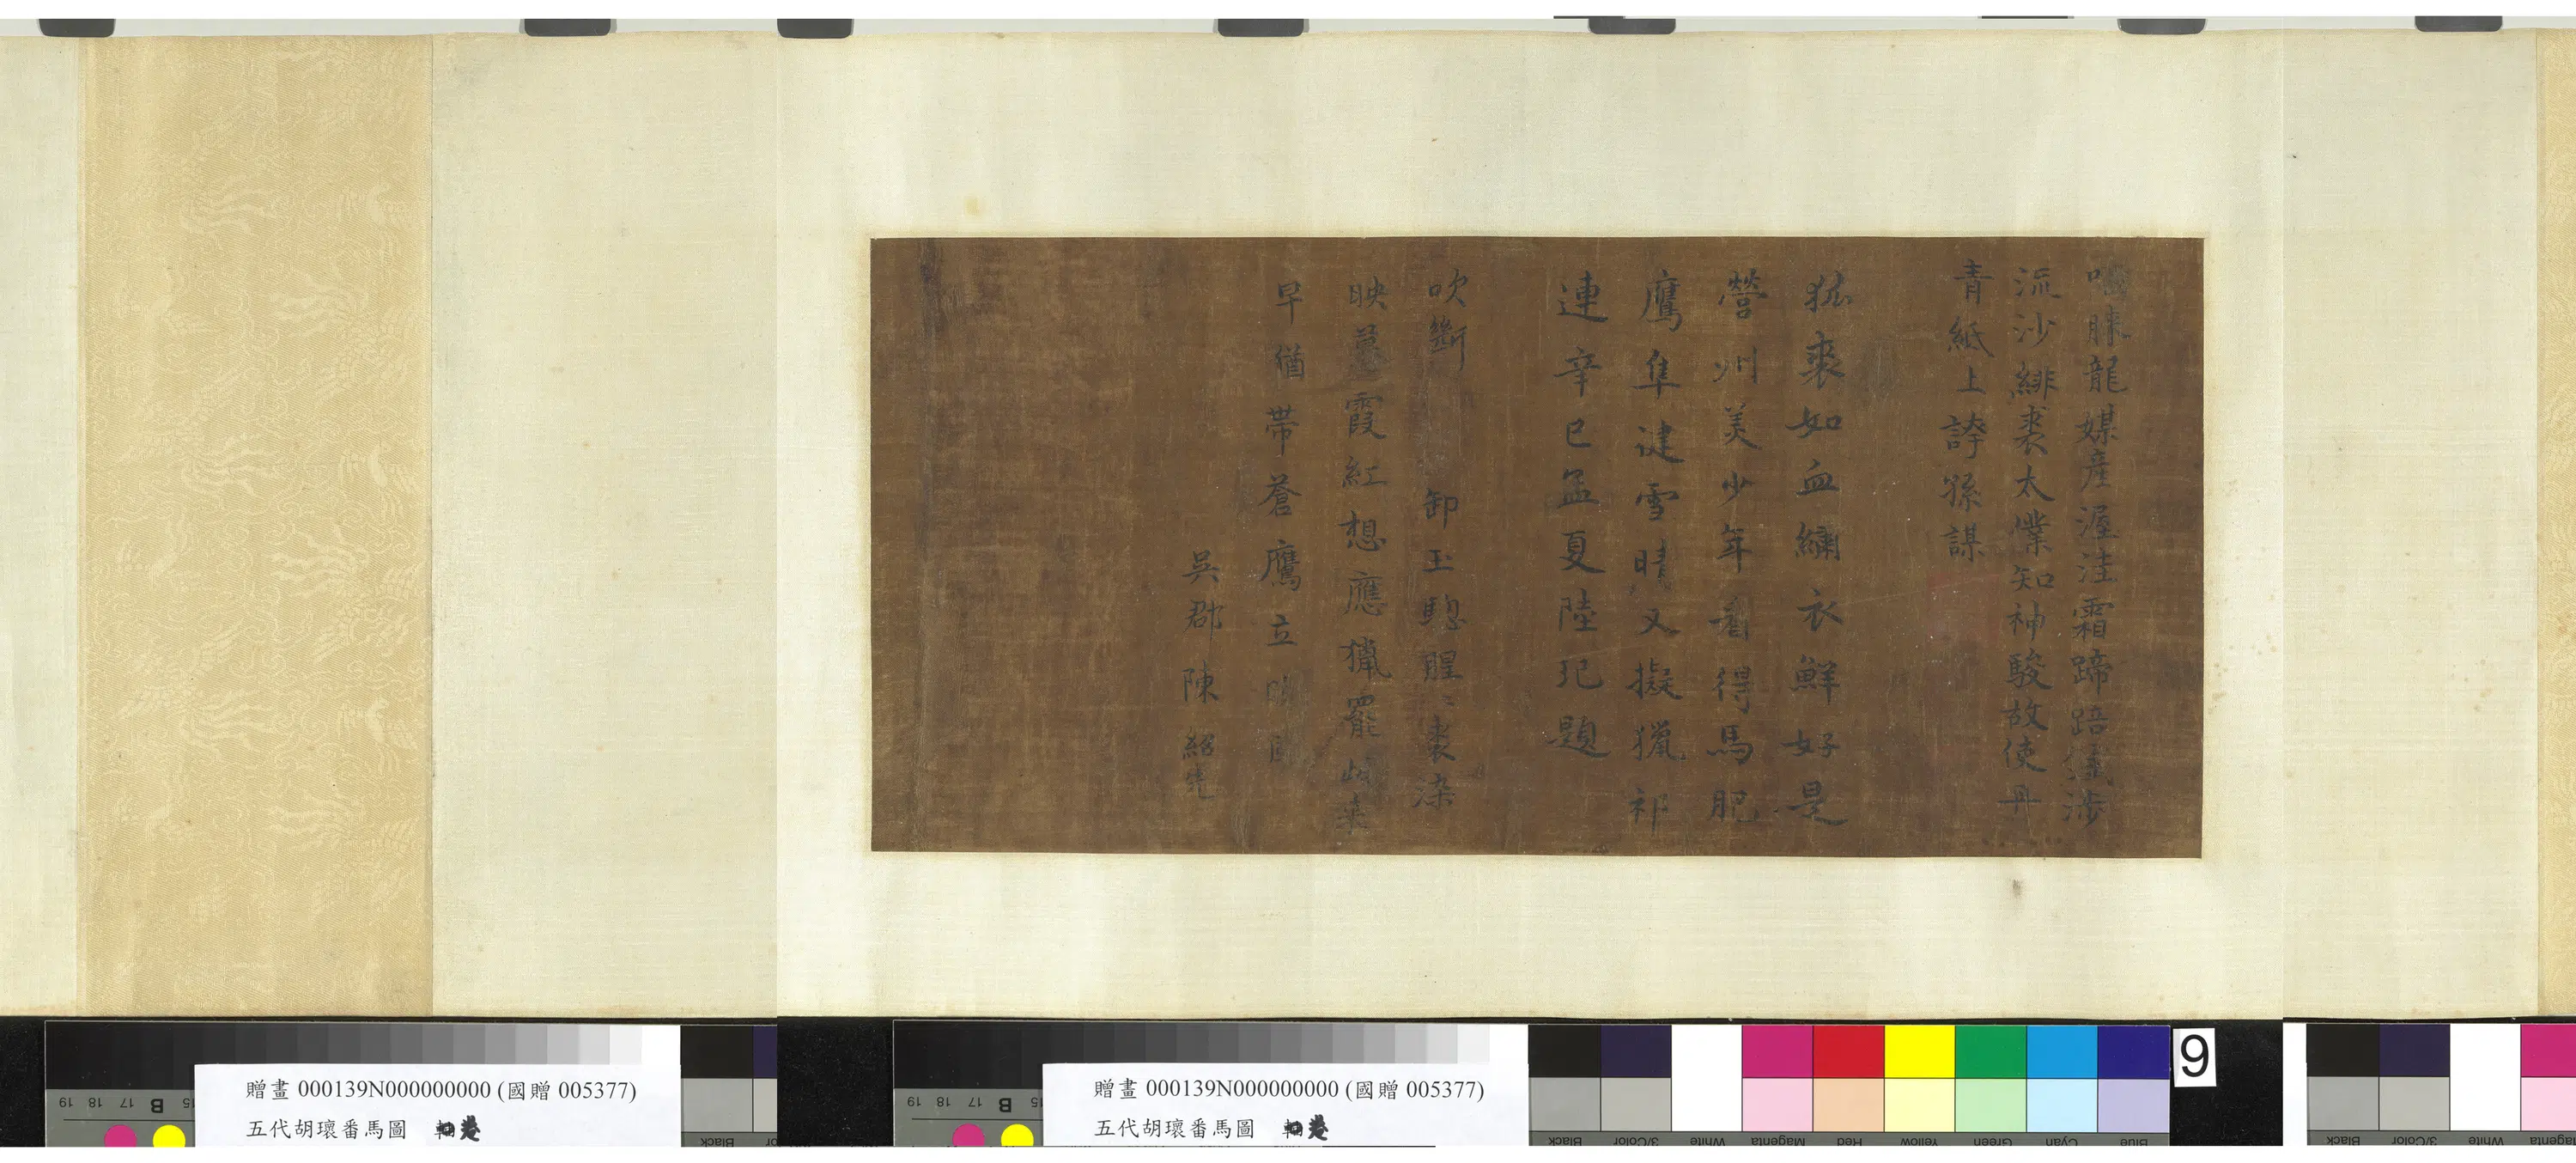 龍媒產渥洼霜蹄踣鐵涉
流沙緋裘太僕知神駿故使丹
青紙上誇孫謀
狨裘如血繡衣鮮好是
營州美少年看得馬肥
鷹隼健雪晴又擬獵祁
連辛巳孟夏陸玘題
吹斷
卸玉驄腥〻裘染
映暮霞紅想應獵罷
早猶帶蒼鷹立
吳郡陳紹先
贈畫 000139N000000000 (國贈 005377)
五代胡瓌番馬圖 卷
贈畫 000139N000000000 (國贈 005377)
五代胡瓌番馬圖 卷
9
19 18 17 B 15
19 18 17 B 15
Black 3/Color White Magenta Red Yellow Green Cyan Blue
Black 3/Color White Magenta